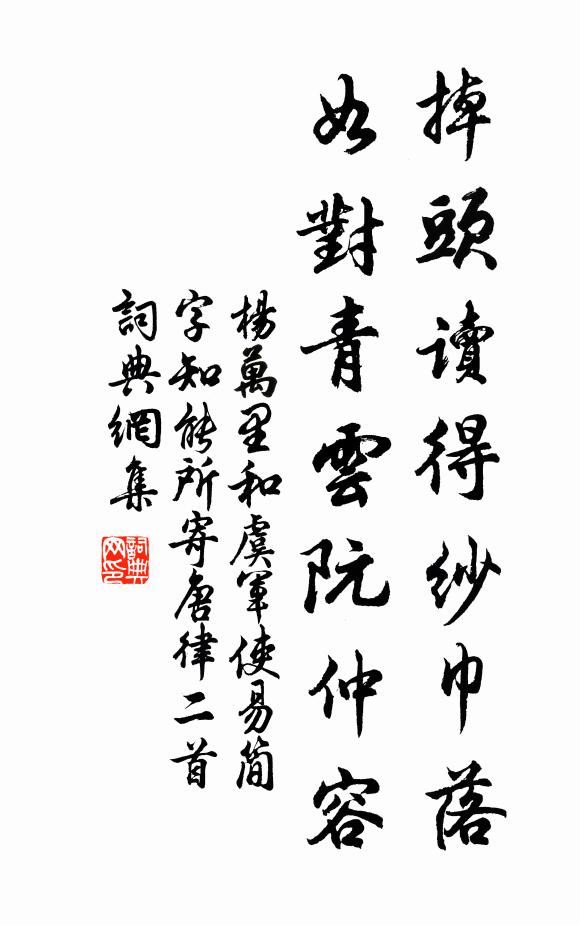 掉頭讀得紗巾落
如對青雲阮仲容
楊萬里和虞軍使易簡
字知能所寄唐律二首
詞典網集
詞典網印